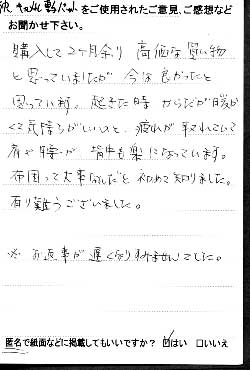 をご使用されたご意見、ご感想など
お聞かせ下さい。
購入して2ヶ月余り 高価な買い物
と思っていましたが 今は良かったと
思っています。起きた時 からだが暖か
くて気持ちがいいのと、疲れが取れていて
肩や腰が 背中も楽になっています。
布団って大事なんだと 初めて知りました。
有り難うございました。
※ お返事が遅くなりすみませんでした。
匿名で紙面などに掲載してもいいですか? ☑はい □いいえ